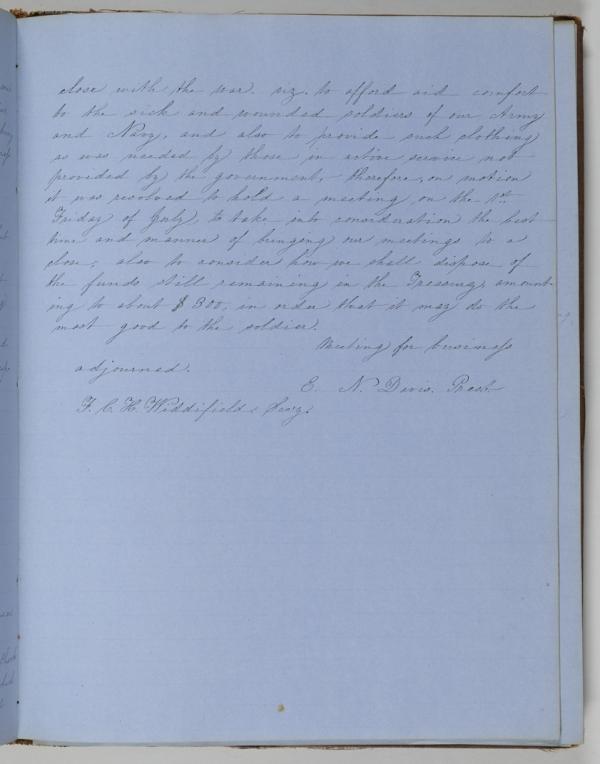 close with the war. viz. to afford aid comfort
to the sick and wounded soldiers of our Army
and Navy, and also to provide such clothing
as was needed by those in active service not
provided by the government, therefore, on motion
it was resolved to hold a meeting on the 1st
Friday of July, to take into consideration the best
time and manner of bringing our meetings to a
close; also to consider how we shall dispose of
the funds still remaining in the Treasury, amount-
ing to about $300, in order that it may do the
most good to the soldier.
Meeting for business
adjourned.
E. N. Davis. Prest.
F. C. H. Widdifield, Secy.